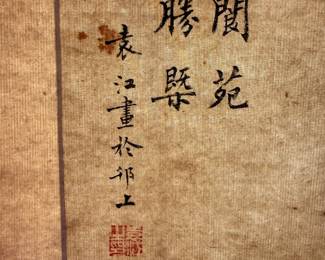 閬苑
勝槩
袁江畫於邗上